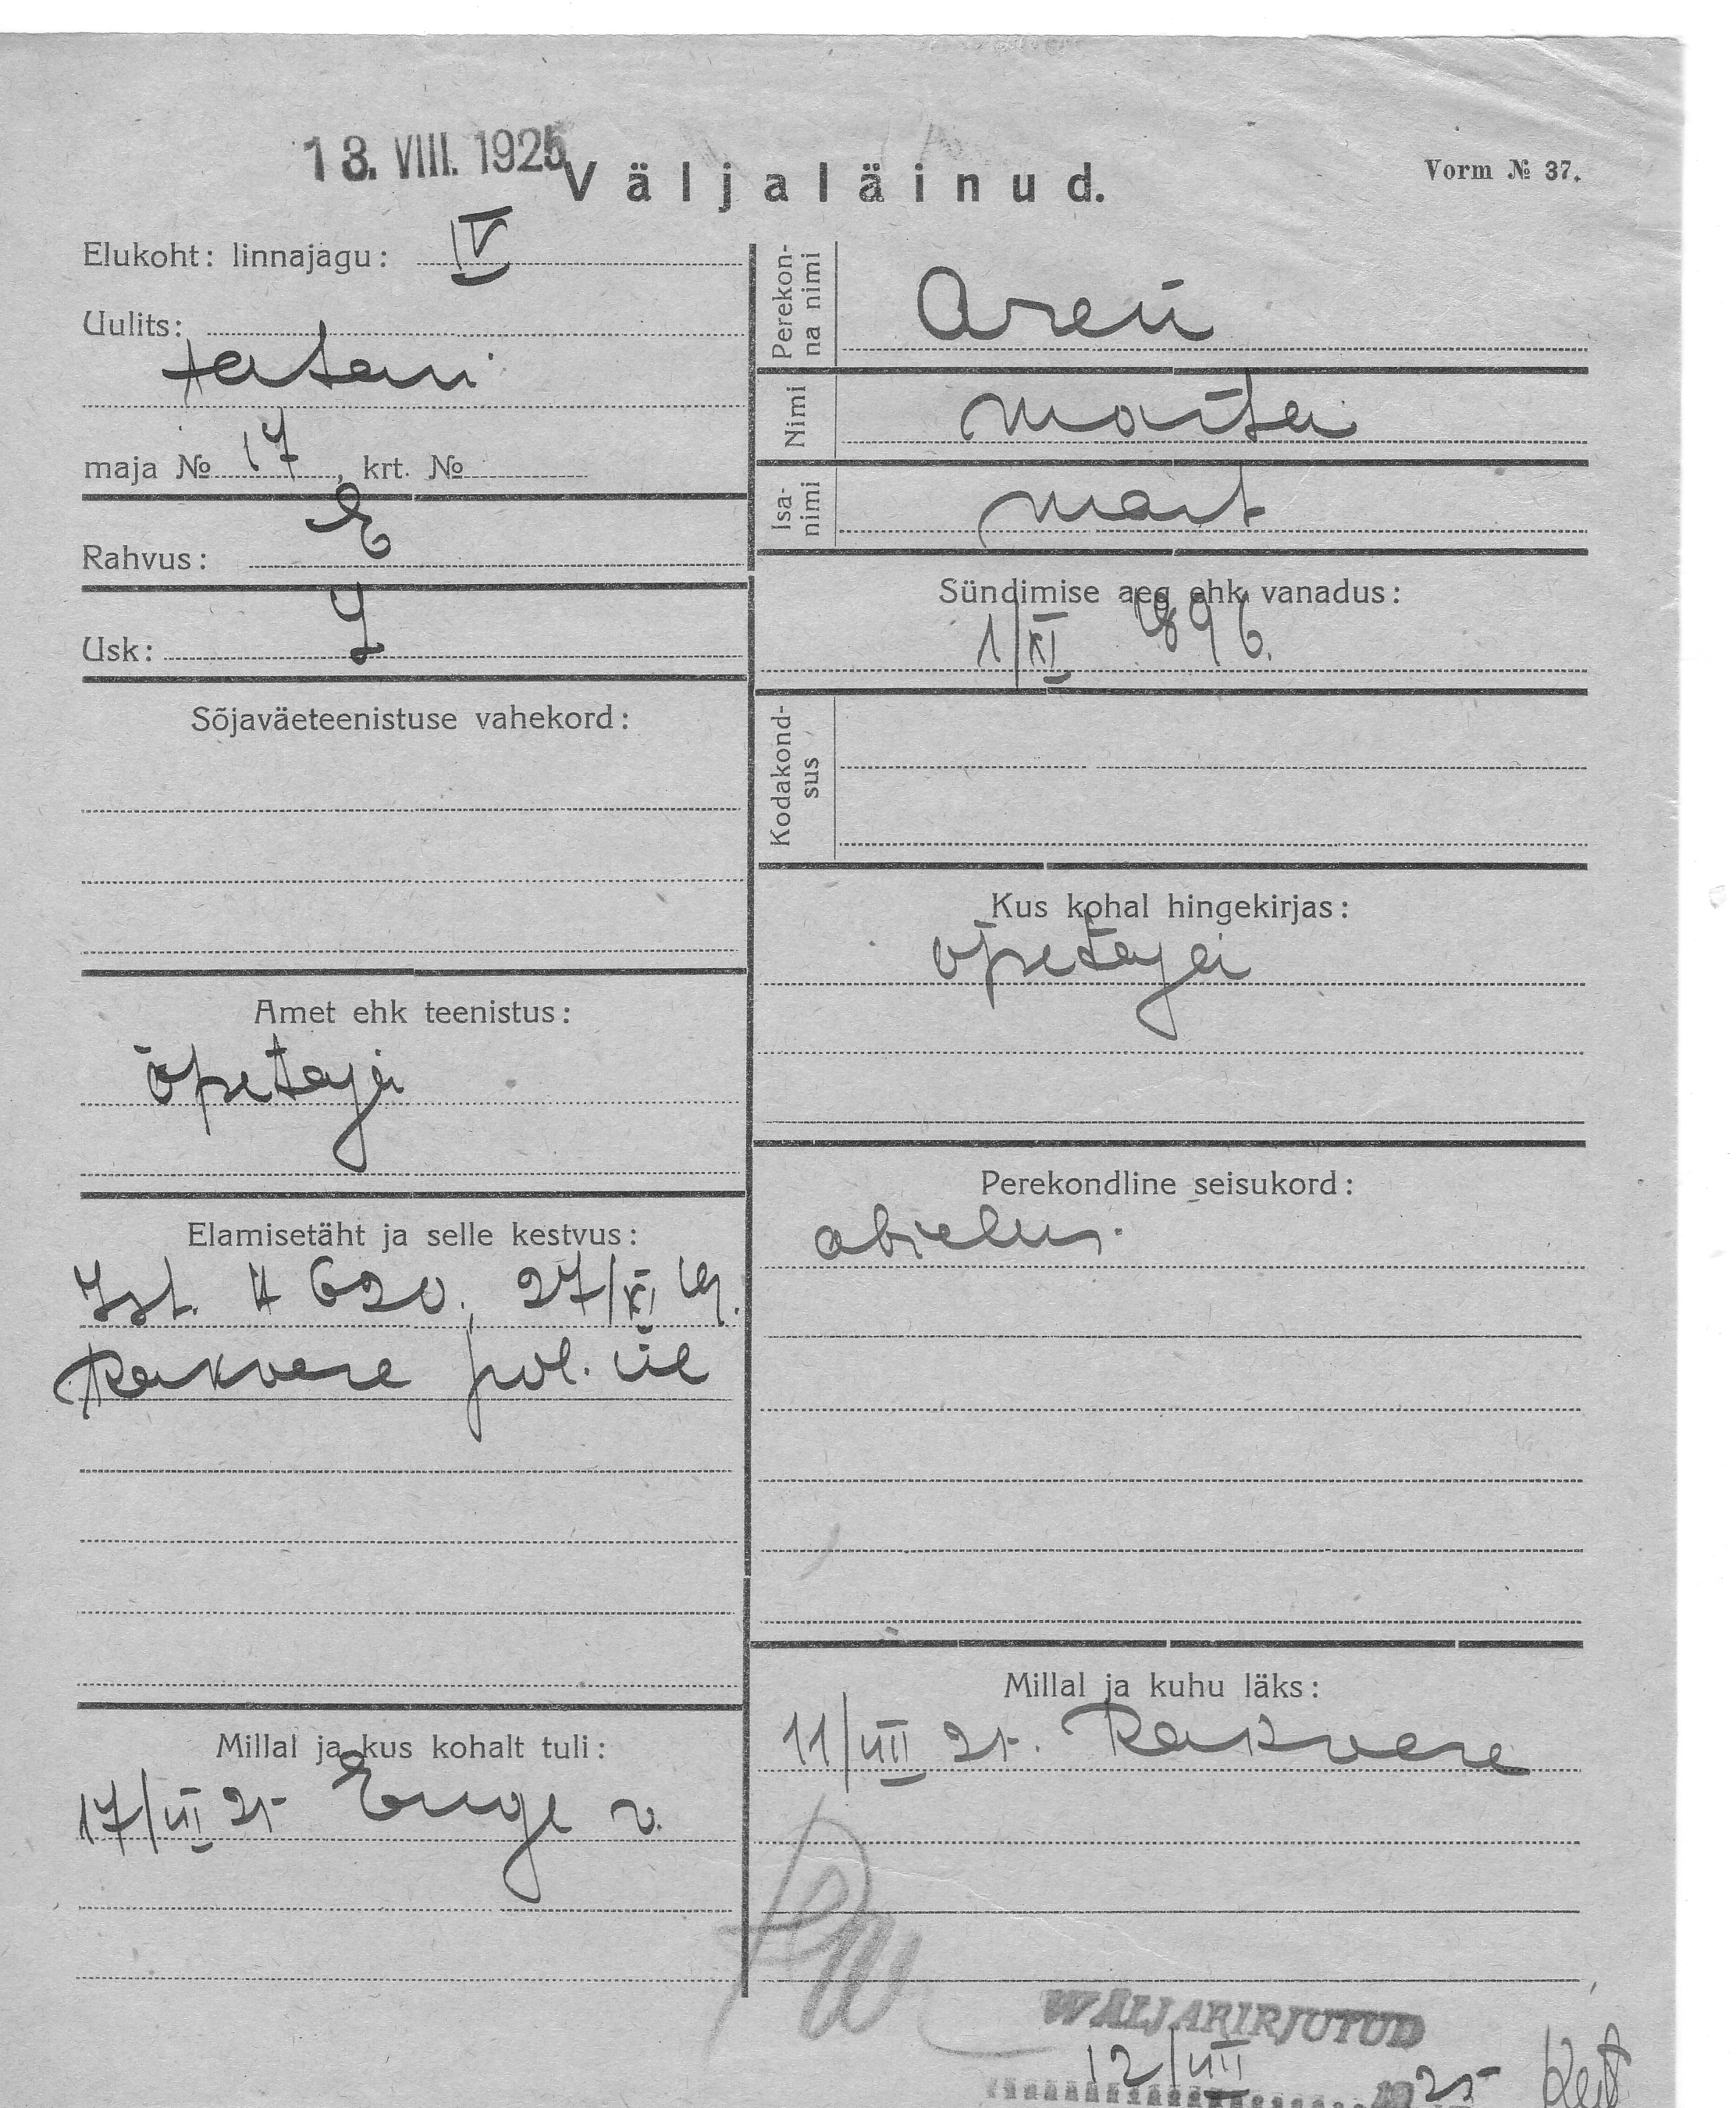 13. VIII. 1925
Väljaläinud.
Vorm № 37.
Elukoht: linnajagu: IV
Uulits:
Tatari
maja № 17, krt. №
Rahvus: E
Usk: L
Sõjaväeteenistuse vahekord:
Amet ehk teenistus:
õpetaja
Elamisetäht ja selle kestvus:
Ist. № 620, 27/XI 19.
Rakvere pol. ül
Millal ja kus kohalt tuli:
17/VII 25 v.
Perekon-
na nimi
Aren
Nimi
Marta
Isa-
nimi
Mart
Sündimise aeg ehk vanadus:
1/XI 1896.
Kodakond-
sus
Kus kohal hingekirjas:
õpetaja
Perekondline seisukord:
abielus.
Millal ja kuhu läks:
11/VIII 25. Rakvere
WÄLJAKIRJUTUD
12/VIII 1925